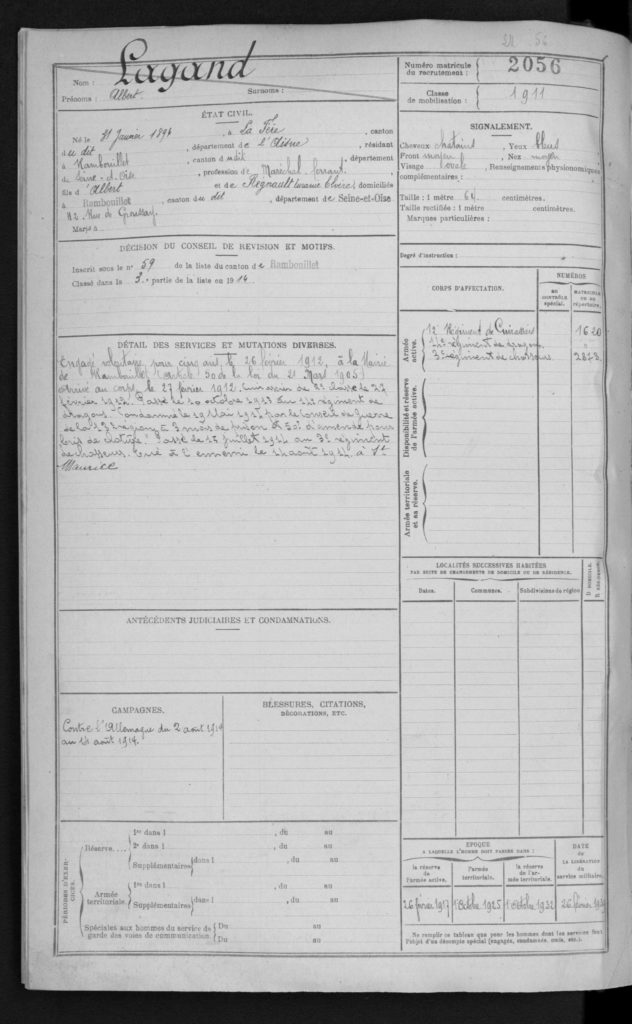 Nom : Lagand
Prénoms : Albert. Surnoms :
Numéro matricule du recrutement : 2056
Classe de mobilisation : 1911
ÉTAT CIVIL.
Né le 21 Janvier 1894, à La Fère, canton
du dit, département de l'Aisne, résidant
à Rambouillet, canton du dit, département
de Seine-et-Oise, profession de Maréchal-ferrant
fils d'Albert et de Régnault domiciliés
à Rambouillet, canton du dit, département de Seine-et-Oise
42 Rue de Groussay
Marié à
SIGNALEMENT.
Cheveux chatains Yeux bleus
Front moyen Nez moyen
Visage ovale Renseignements physionomiques
complémentaires :
Taille : 1 mètre 64 centimètres.
Taille rectifiée : 1 mètre centimètres.
Marques particulières :
Degré d'instruction :
DÉCISION DU CONSEIL DE REVISION ET MOTIFS.
Inscrit sous le n° 59 de la liste du canton de Rambouillet
Classé dans la 3e partie de la liste en 1914
CORPS D'AFFECTATION.
NUMÉROS
AU CONTRÔLE spécial.
MATRICULE OU AU répertoire.
Armée active.
12 Régiment de Cuirassiers 1620
14e régiment de dragons "
3e régiment de chasseurs 2873
Disponibilité et réserve de l'armée active.
Armée territoriale et sa réserve.
DÉTAIL DES SERVICES ET MUTATIONS DIVERSES.
Engagé volontaire pour cinq ans, le 26 février 1912, à la Mairie
de Rambouillet (article 50 de la loi du 21 Mars 1905)
Arrivé au corps le 27 février 1912. Cuirassier de 2e classe le 27
février 1912. Passé le 10 octobre 1913 au 14e régiment de
dragons. Condamné le 19 Mai 1914 par le Conseil de Guerre
de la région à 3 mois de prison et d'amende pour
bris de cloture. Passé le 15 juillet 1914 au 3e régiment
de chasseurs. Tué à l'ennemi le 14 août 1914 à St
Maurice
LOCALITÉS SUCCESSIVES HABITÉES
PAR SUITE DE CHANGEMENTS DE DOMICILE OU DE RÉSIDENCE.
Dates. Communes. Subdivisions de région D. DOMICILE. R. RÉSIDENCE.
ANTÉCÉDENTS JUDICIAIRES ET CONDAMNATIONS.
CAMPAGNES.
Contre l'Allemagne du 2 août 1914
au 14 août 1914.
BLESSURES, CITATIONS,
DÉCORATIONS, ETC.
PÉRIODES D'EXERCICES.
Réserve....
1re dans l , du au
2e dans l , du au
Supplémentaires dans l , du au
Armée territoriale.
1re dans l , du au
Supplémentaires dans l , du au
Spéciales aux hommes du service de garde des voies de communication.
Du au
Du au
ÉPOQUE
A LAQUELLE L'HOMME DOIT PASSER DANS :
la réserve de l'armée active.
l'armée territoriale.
la réserve de l'armée territoriale.
DATE DE LA LIBÉRATION du service militaire.
26 février 1917 1 Octobre 1925 1 Octobre 1932 26 février
Ne remplir ce tableau que pour les hommes dont les services font
l'objet d'un décompte spécial (engagés, condamnés, omis, etc.).